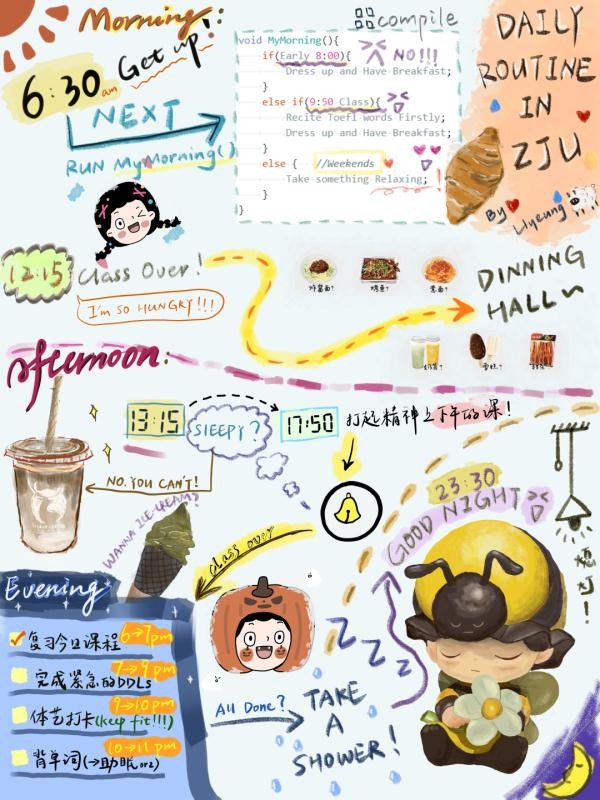 Morning:
6:30 am
Get up!
NEXT
RUN MyMorning()
compile
void MyMorning(){
if(Early 8:00){ NO!!!
Dress up and Have Breakfast;
}
else if(9:50 Class){
Recite Toefl words Firstly;
Dress up and Have Breakfast;
}
else { //Weekends
Take something Relaxing;
}
}
DAILY
ROUTINE
IN
ZJU
By
12:15 Class Over!
I'm so HUNGRY!!!
烤鱼?
DINNING
HALL~
雪糕?
Afternoon:
13:15
SlEEPY?
17:50
打起精神上下午的课!
NO. YOU CAN'T!
WANNA ICE-CREAM?
class over
23:30
GOOD NIGHT
熄灯!
Evening
复习今日课程 6→7pm
完成紧急的DDLs 7→9pm
体艺打卡(keep fit!!!) 9→10pm
背单词(→助眠orz) 10→11pm
All Done?
TAKE
A
SHOWER!
Z Z Z